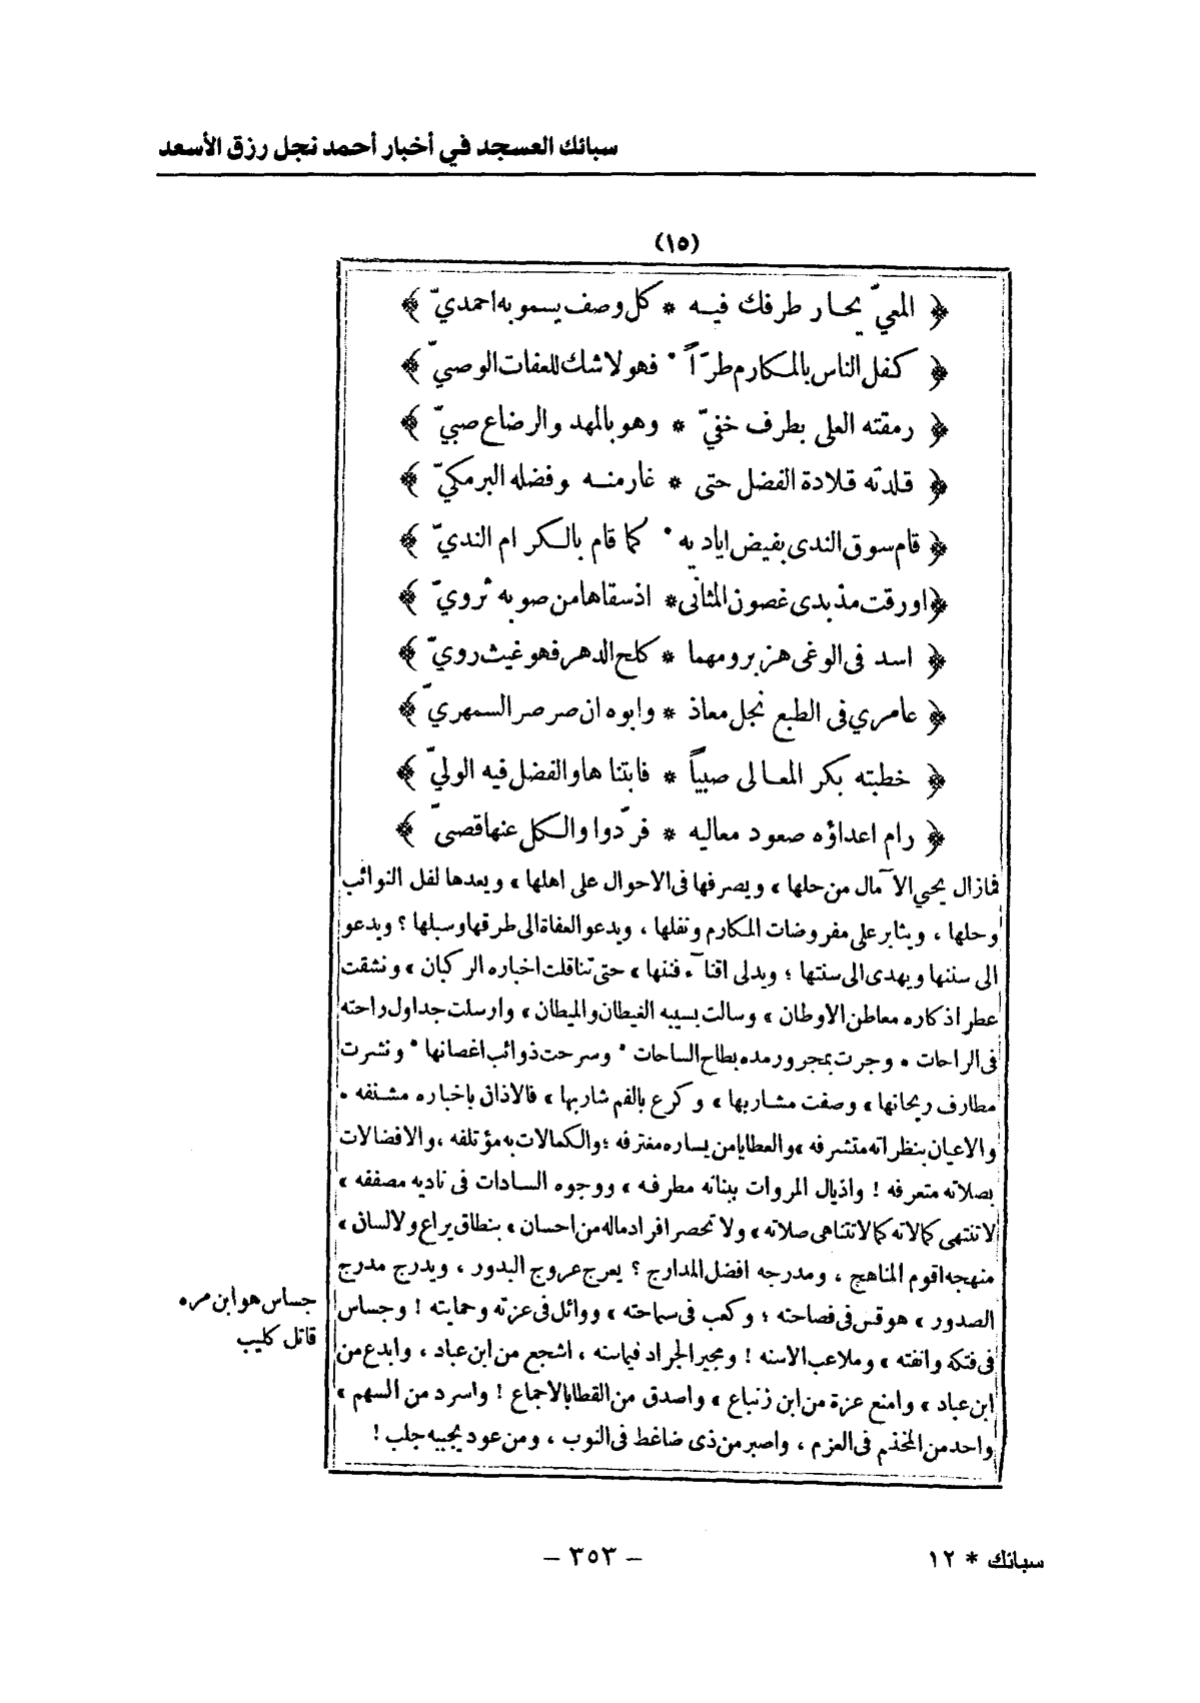 سبائك العسجد في أخبار أحمد نجل رزق الأسعد
(١٥)
﴿ المعيّ يحار طرفك فيه * كل وصف يسمو به احمديّ ﴾
﴿ كفل الناس بالمكارم طرّاً * فهو لاشك للعفات الوصيّ ﴾
﴿ رمقته العلى بطرف خفيّ * وهو بالمهد والرضاع صبيّ ﴾
﴿ قلدته قلادة الفضل حتى * غار منه وفضله البرمكيّ ﴾
﴿ قام سوق الندى بفيض اياديه * كما قام بالكرام النديّ ﴾
﴿ اورقت مذ بدى غصون المثانى * اذ سقاها من صوبه ثرويّ ﴾
﴿ اسد فى الوغى هزبر ومهما * كلح الدهر فهو غيث رويّ ﴾
﴿ عامري فى الطبع نجل معاذ * وابوه ان صرصر السمهريّ ﴾
﴿ خطبته بكر المعالى صبياً * فابتناها والفضل فيه الوليّ ﴾
﴿ رام اعداؤه صعود معاليه * فردّوا والكل عنها قصىّ ﴾
فمازال يحيي الآمال من حلها ، ويصرفها فى الاحوال على اهلها ، ويعدها لفل النوائب
وحلها ، ويثابر على مفروضات المكارم ونفلها ، ويدعو العفاة الى طرقها وسبلها ؟ ويدعو
الى سننها ويهدى الى سنتها ؛ ويدلى افنآء فننها ، حتى تناقلت اخباره الركبان ، ونشقت
عطر اذكاره معاطن الاوطان ، وسالت بسيبه الغيطان والميطان ، وارسلت جداول راحته
فى الراحات ، وجرت بمجرور مده بطاح الساحات * وسرحت ذوائب اغصانها * ونشرت
مطارف ريحانها ، وصفت مشاربها ، وكرع بالفم شاربها ، فالاذان باخباره مشنفه ،
والاعيان بنظراته متشرفه ، والعطايا من يساره مغترفه ؛ والكمالات به مؤتلفه ، والافضالات
بصلاته متعرفه ! واذيال المروات ببنانه مطرفه ، ووجوه السادات فى ناديه مصففه ،
لا تنتهى كمالاته كما لا تتناهى صلاته ، ولا تحصر افراد ماله من احسان ، بنطاق يراع ولا لسان ،
منهجه اقوم المناهج ، ومدرجه افضل المدارج ؟ يعرج عروج البدور ، ويدرج مدرج
الصدور ، هو قس فى فصاحته ؛ وكعب فى سماحته ، ووائل فى عزته وحمايته ! وجساس
جساس هو ابن مره
قاتل كليب
فى فتكه وانفته ، وملاعب الاسنه ! ومجير الجراد فيامنه ، اشجع من ابن عباد ، وابدع من
ابن عباد ، وامنع عزة من ابن زنباع ، واصدق من القطا بالاجماع ! واسرد من السهم ،
واحد من المخذم فى العزم ، واصبر من ذى ضاغط فى النوب ، ومن عود بجبيه جلب !
سبائك * ١٢
– ٣٥٣ –